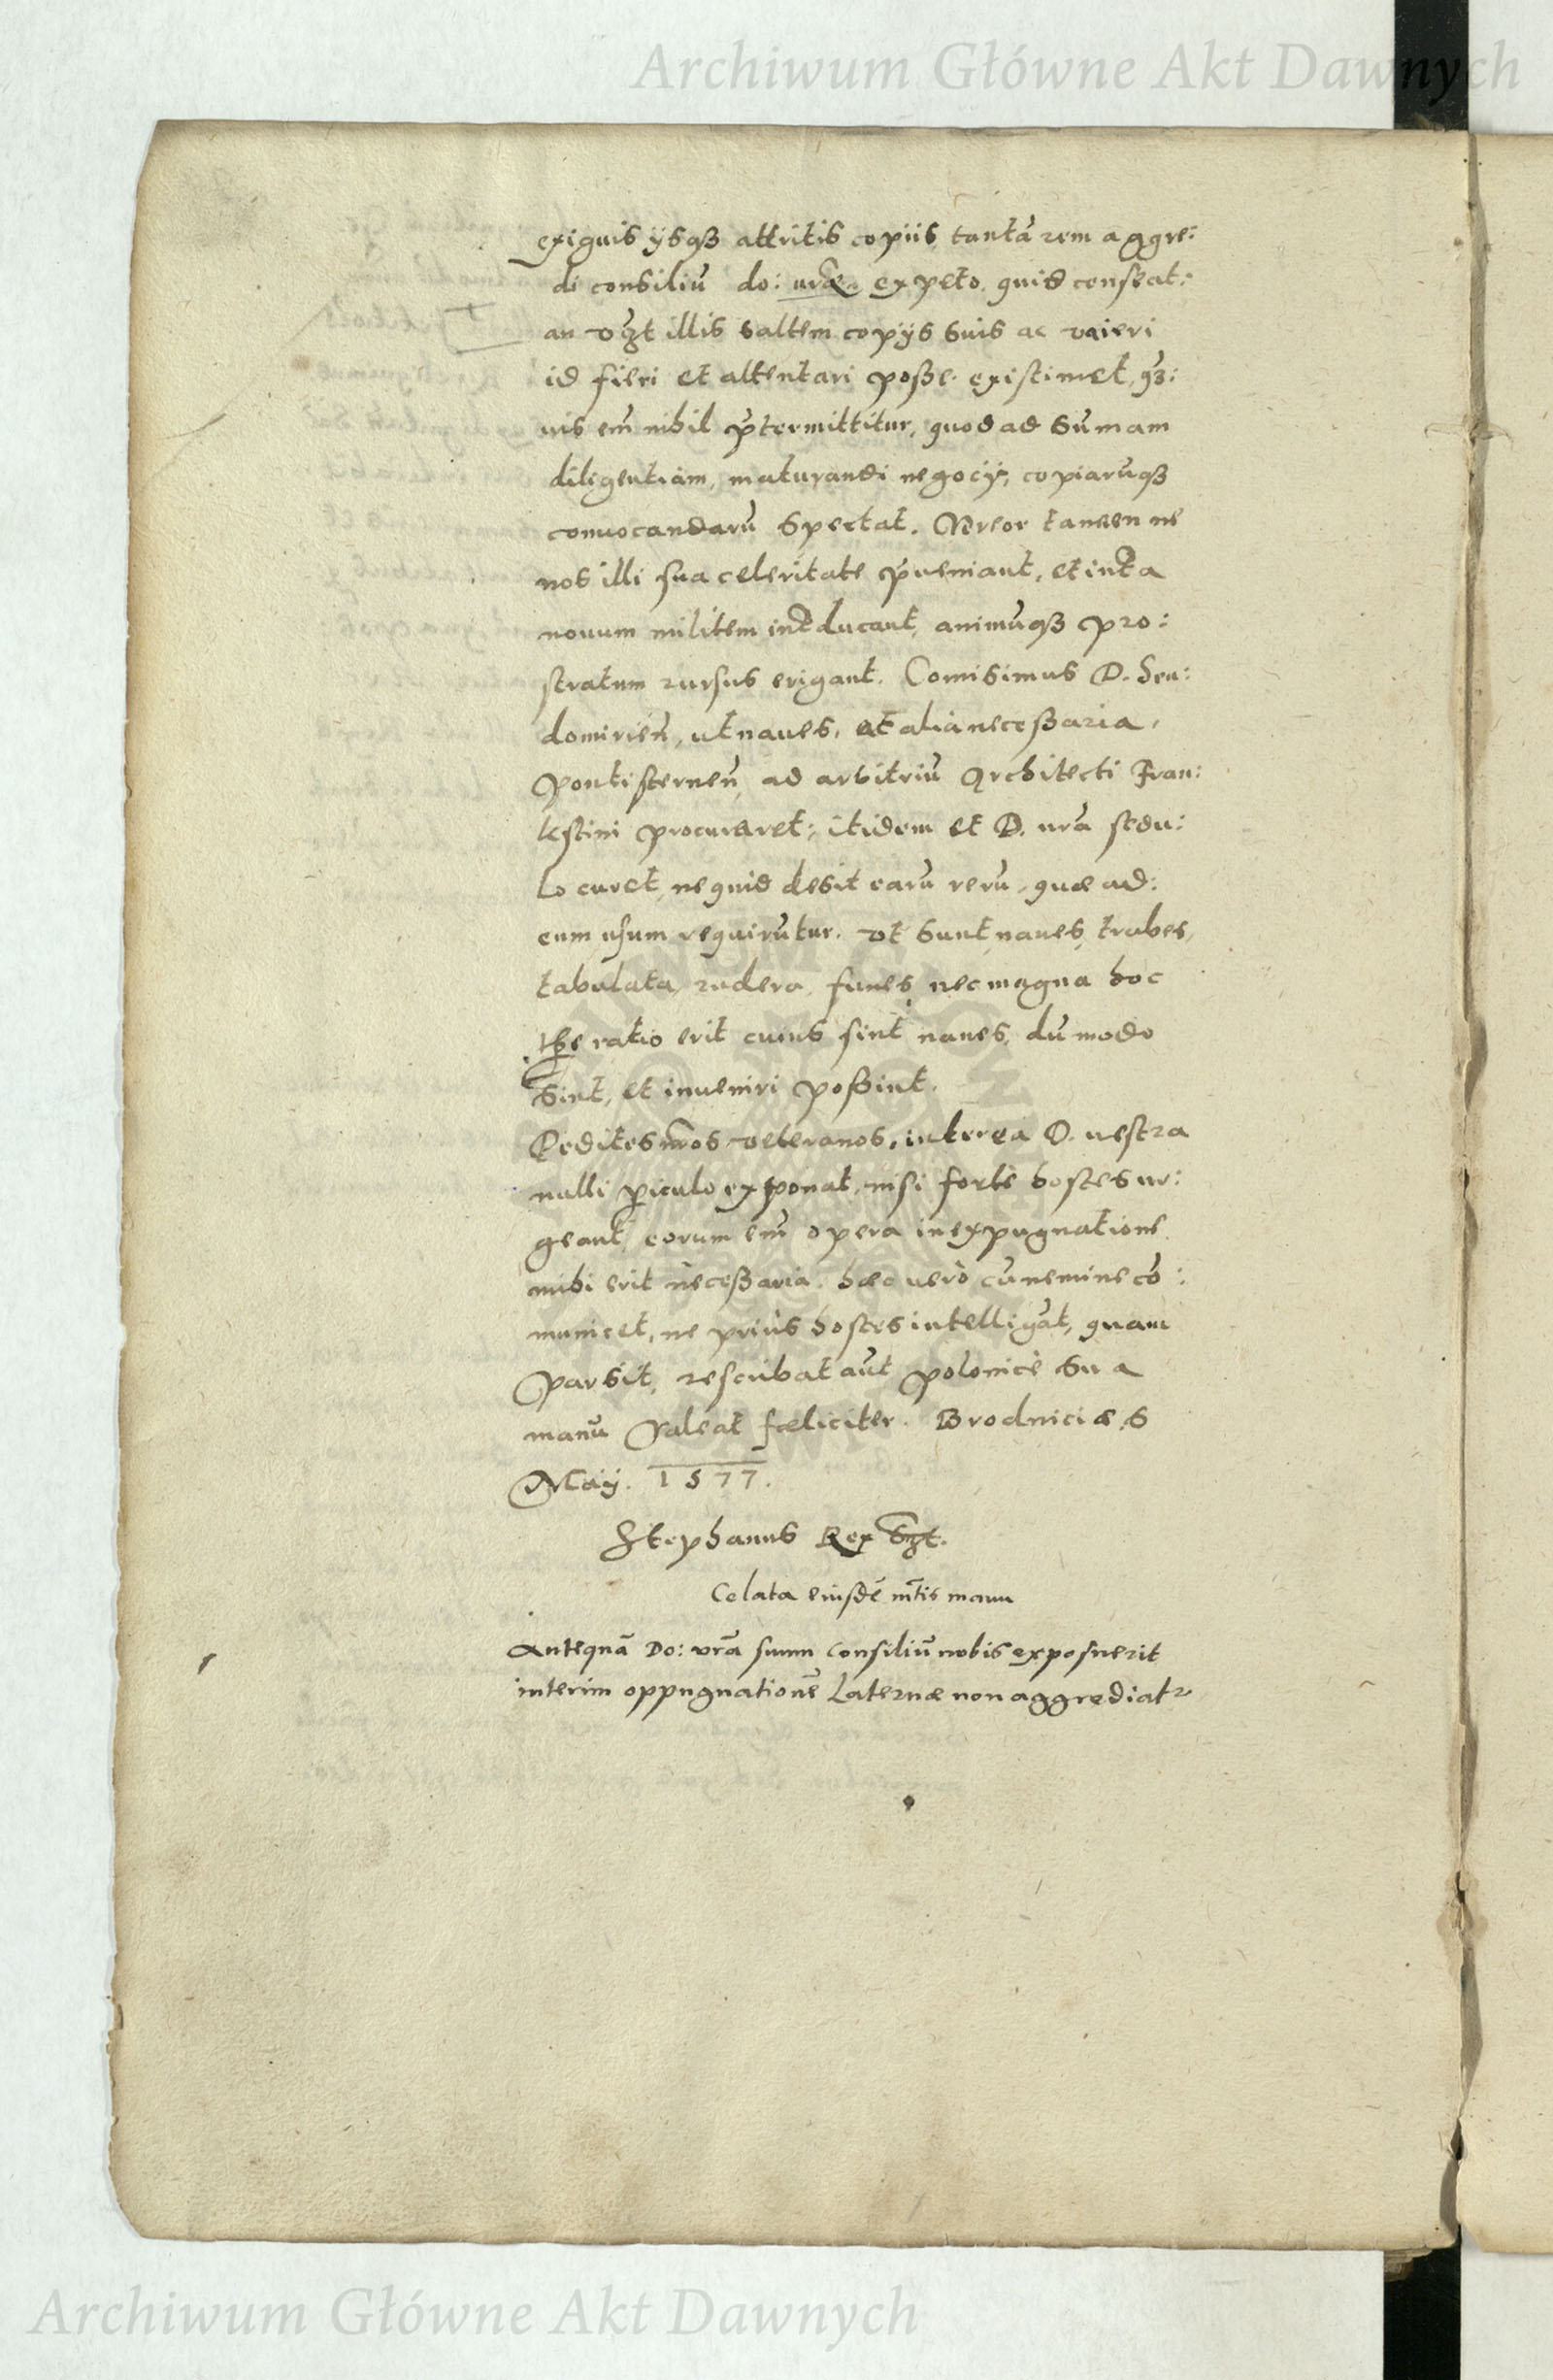 Archiwum Główne Akt Dawnych
exiguis ijsqꝫ attritis copiis, tantā rem aggre:
di consiliū do: vrāe expeto, quid censeat:
an illis saltem copijs suis ac
id fieri et attentari posse existimet,
uis em̄ nihil p̄termittitur, quod ad sum̄am
diligentiam, maturandi negocij, copiarūqꝫ
conuocandarū spectat. Vereor tamen ne
nos illi sua celeritate p̄ueniant, et intᵃ
nouum militem intᵒducant, animūqꝫ pro:
stratum rursus erigant. Com̄isimus D. Sen:
domirien̄, ut naues, et alia necessaria,
Ponti sternen̄, ad arbitriū Architecti Fran:
cstini procuraret: itidem et D. vrā sedu:
lo curet, nequid desit earū rerū, quae ad:
eum usum requirūtur. vt sunt, naues, trabes,
tabulata, rudera, funes, nec magna hoc
tꝑe ratio erit cuius sint naues, dum̄odo
sint, et inueniri possint.
Pedites nr̄os veteranos, interea D. uestra
nulli ꝑiculo exponat, nisi forte hostes ur:
geant, eorum em̄ opera in expugnatione
mihi erit necessaria. haec uerò cū nemine cō:
municet, ne prius hostes intelligāt, quam
par sit, rescribat aūt polonicè sua
manū Valeat foeliciter. Brodniciae, 5
Maij. 1577.
Stephanus Rex
Celata eiusdē mt̄is manu
Antequā Do: vrā suum consiliū nobis exposuerit
interim oppugnationē Laternae non aggrediatr
Archiwum Główne Akt Dawnych